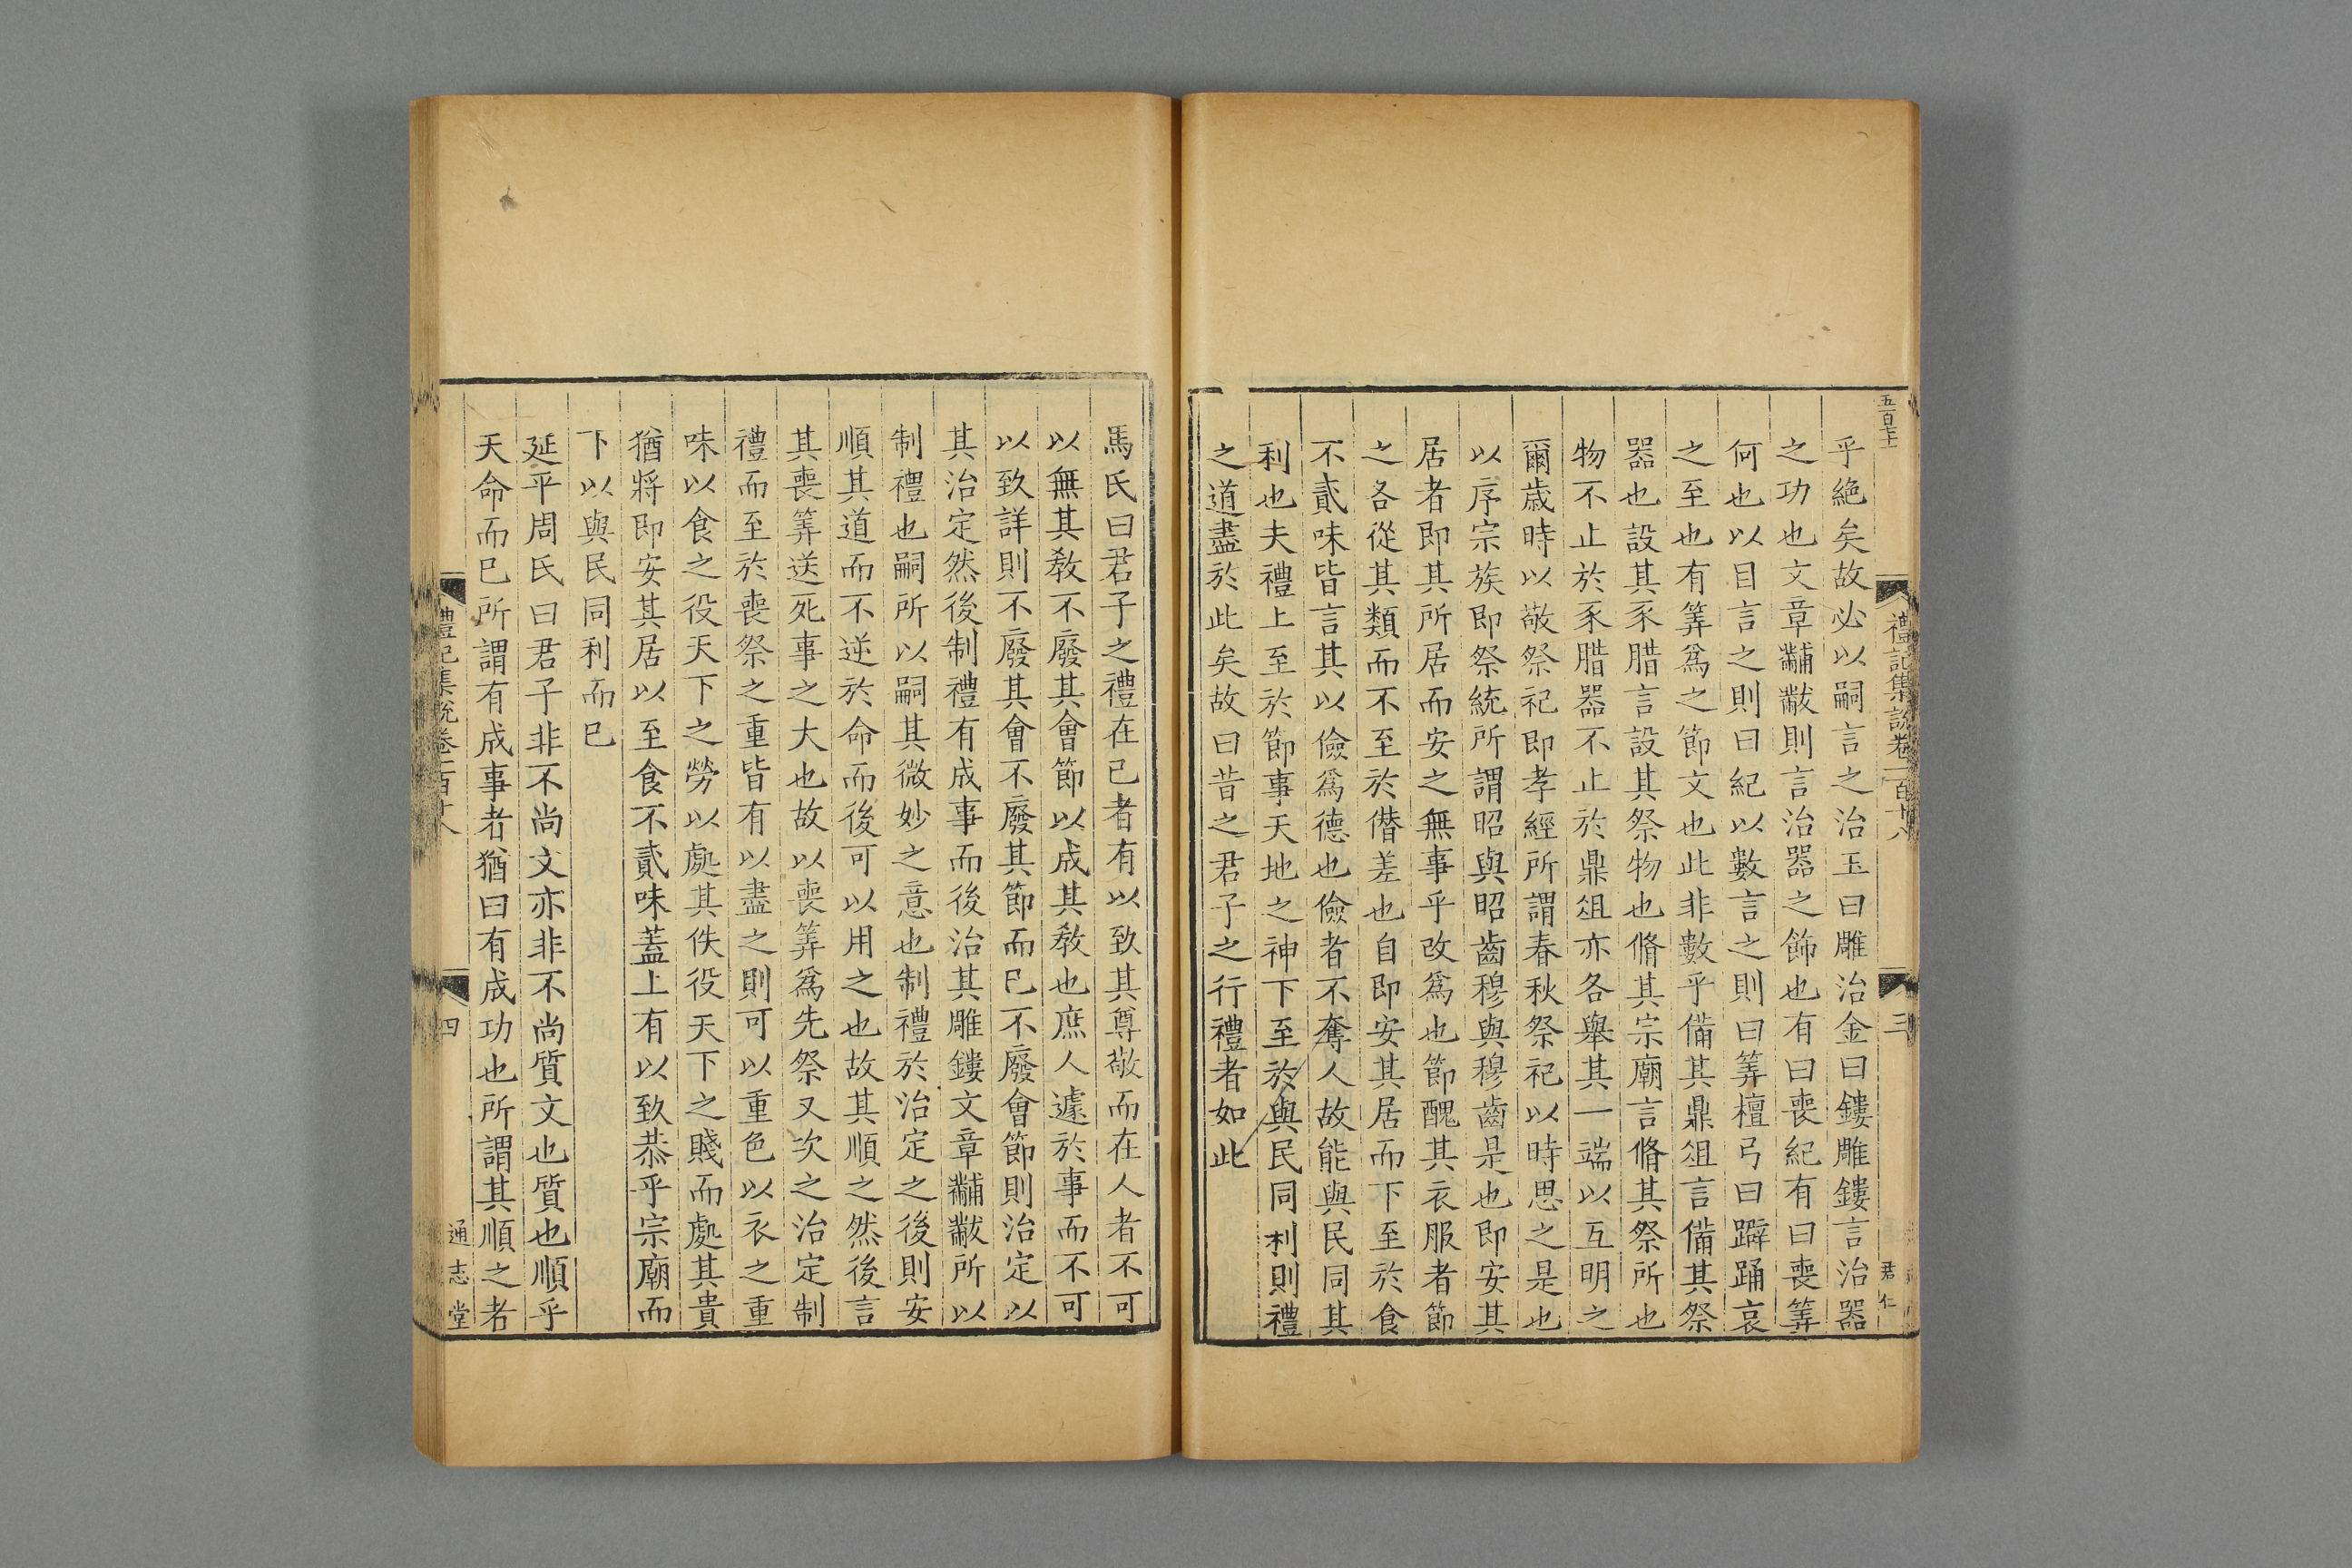 五百七十
禮記集說卷一百十八
三
君仁
乎絶矣故必以嗣言之治玉曰雕治金曰鏤雕鏤言治器
之功也文章黼黻則言治器之飾也有曰喪紀有曰喪筭
何也以目言之則曰紀以數言之則曰筭檀弓曰躃踊哀
之至也有筭爲之節文也此非數乎備其鼎俎言備其祭
器也設其豕腊言設其祭物也脩其宗廟言脩其祭所也
物不止於豕腊器不止於鼎俎亦各舉其一端以互明之
爾歳時以敬祭祀即孝經所謂春秋祭祀以時思之是也
以序宗族即祭統所謂昭與昭齒穆與穆齒是也即安其
居者即其所居而安之無事乎改爲也節醜其衣服者節
之各從其類而不至於僭差也自即安其居而下至於食
不貳味皆言其以儉爲德也儉者不奪人故能與民同其
利也夫禮上至於節事天地之神下至於與民同利則禮
之道盡於此矣故曰昔之君子之行禮者如此
馬氏曰君子之禮在已者有以致其尊敬而在人者不可
以無其敎不廢其會節以成其敎也庶人遽於事而不可
以致詳則不廢其會不廢其節而已不廢會節則治定以
其治定然後制禮有成事而後治其雕鏤文章黼黻所以
制禮也嗣所以嗣其微妙之意也制禮於治定之後則安
順其道而不逆於命而後可以用之也故其順之然後言
其喪筭送死事之大也故以喪筭爲先祭又次之治定制
禮而至於喪祭之重皆有以盡之則可以重色以衣之重
味以食之役天下之勞以處其佚役天下之賤而處其貴
猶將即安其居以至食不貳味蓋上有以致恭乎宗廟而
下以與民同利而已
延平周氏曰君子非不尚文亦非不尚質文也質也順乎
天命而已所謂有成事者猶曰有成功也所謂其順之者
禮記集說卷一百十八
四
通志堂